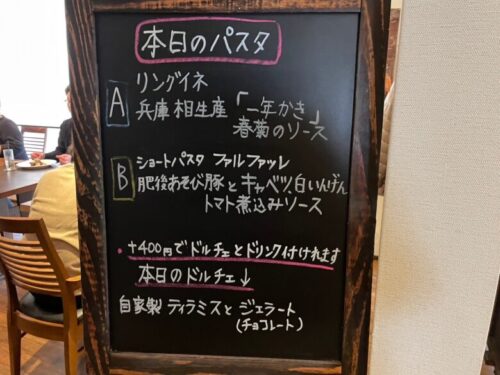 本日のパスタ
A リングイネ
兵庫相生産「一年かき」
春菊のソース
B ショートパスタ ファルファッレ
肥後あそび豚とキャベツ、白いんげん
トマト煮込みソース
・+400円でドルチェとドリンク付けれます
本日のドルチェ↓
自家製 ティラミスと ジェラート
(チョコレート)